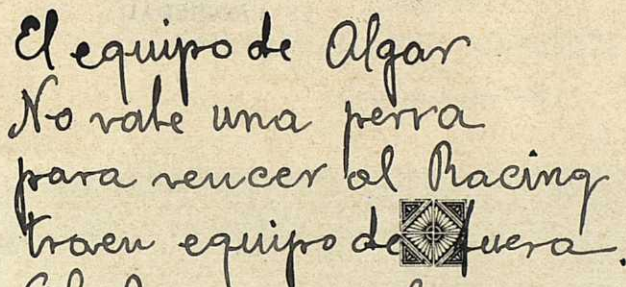 El equipo de Algar
No vale una perra
para vencer al Racing
traen equipo de fuera.